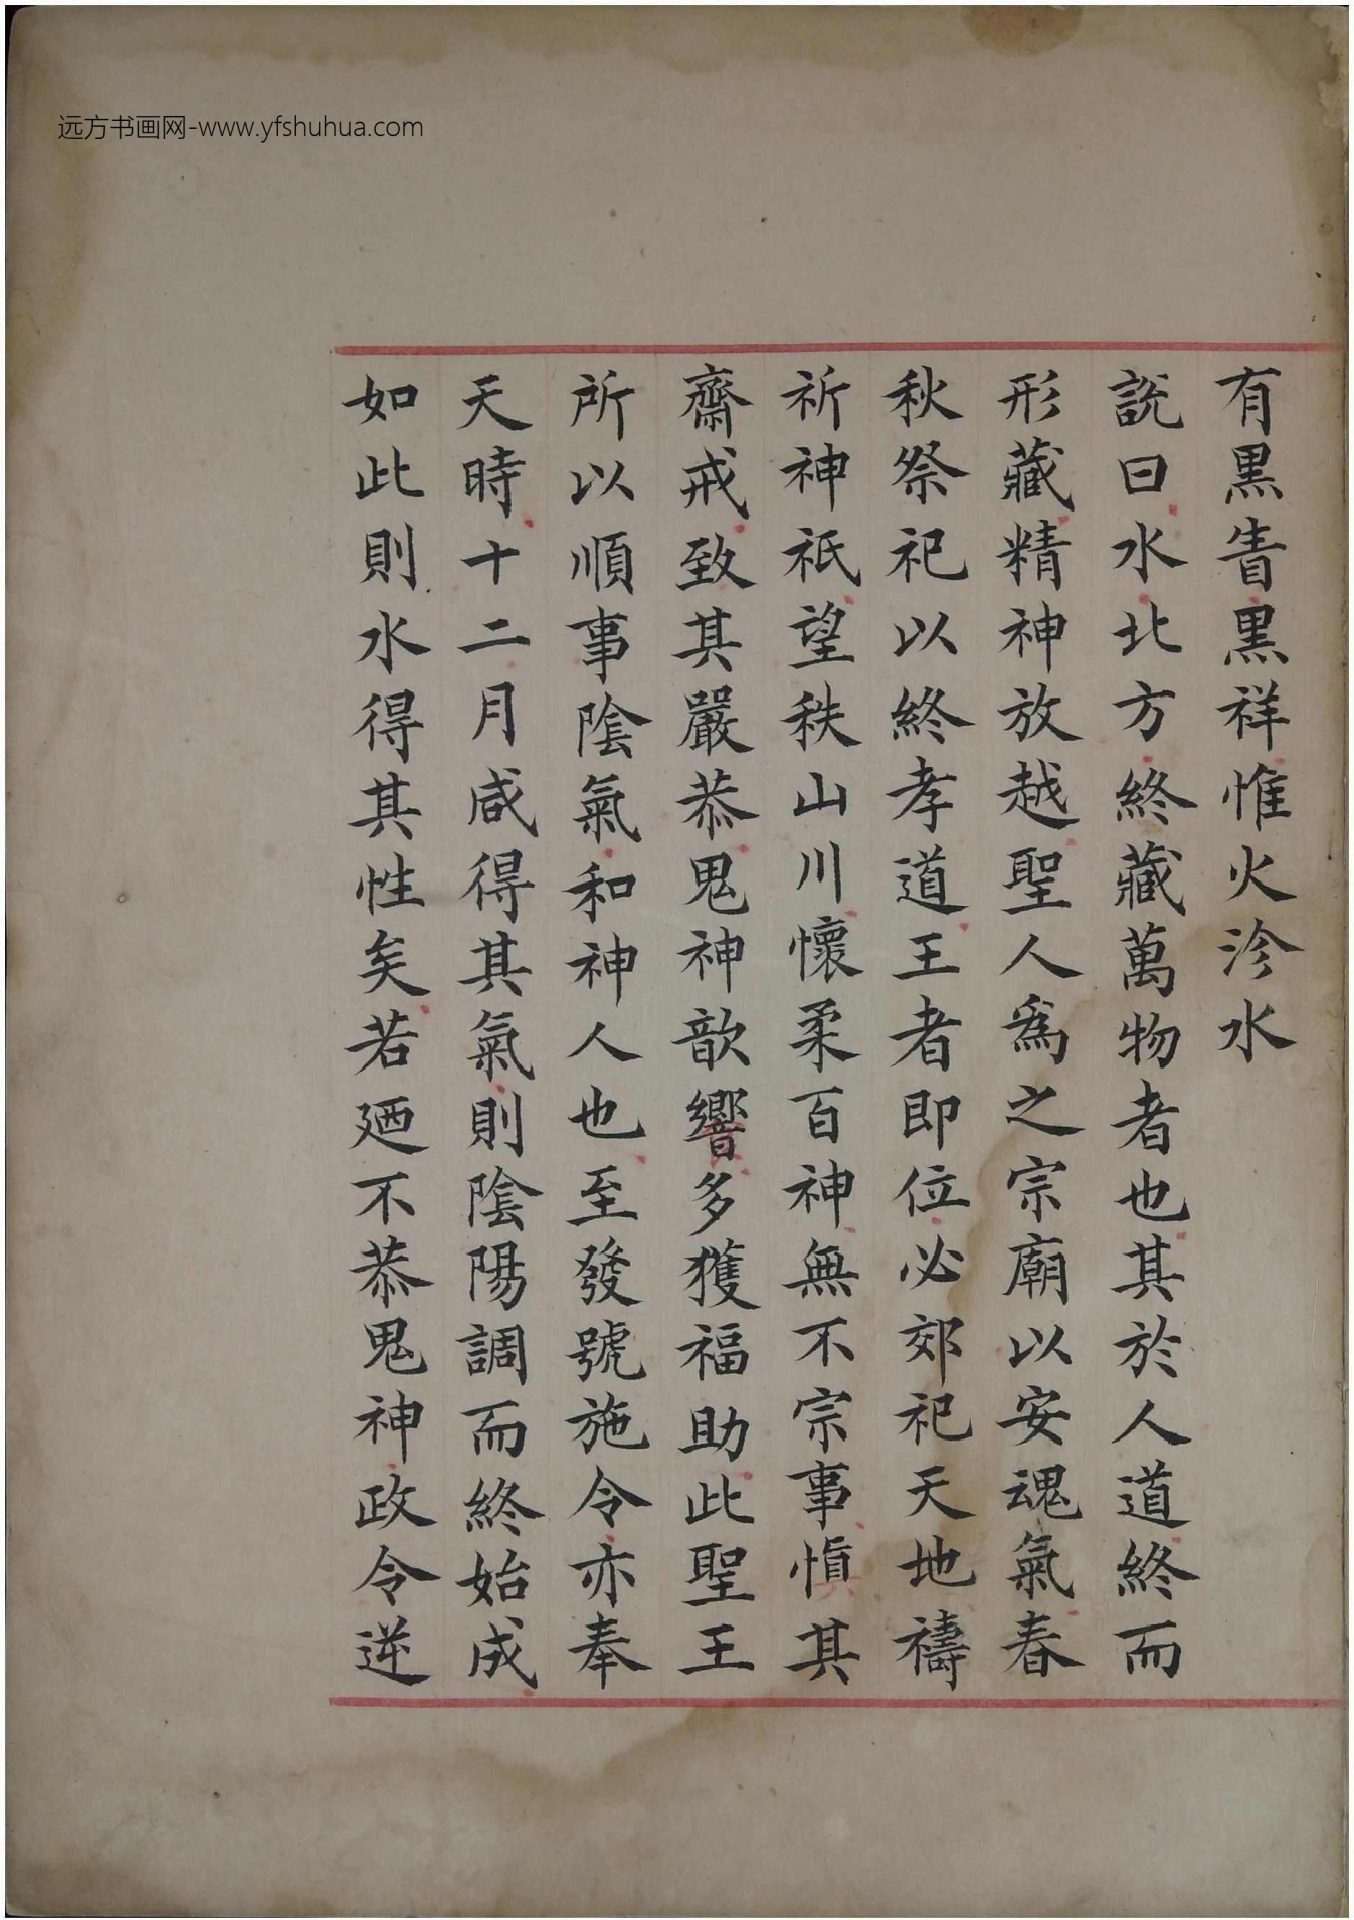 远方书画网-www.yfshuhua.com
有黒眚黒祥惟火沴水
説曰水北方終藏萬物者也其於人道終而
形藏精神放越聖人爲之宗廟以安魂氣春
秋祭祀以終孝道王者即位必郊祀天地禱
祈神祇望秩山川懷柔百神無不宗事愼其
齋戒致其嚴恭鬼神歆響多獲福助此聖王
所以順事陰氣和神人也至發號施令亦奉
天時十二月咸得其氣則陰陽調而終始成
如此則水得其性矣若廼不恭鬼神政令逆